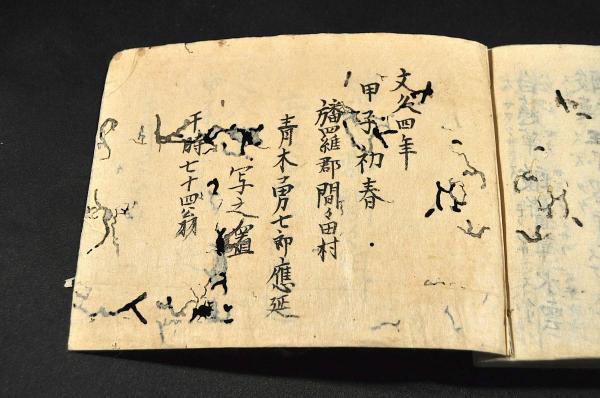 文久四年
甲子初春
旛羅郡間々田村
青木勇七郎應延
写之置
干時七十四翁